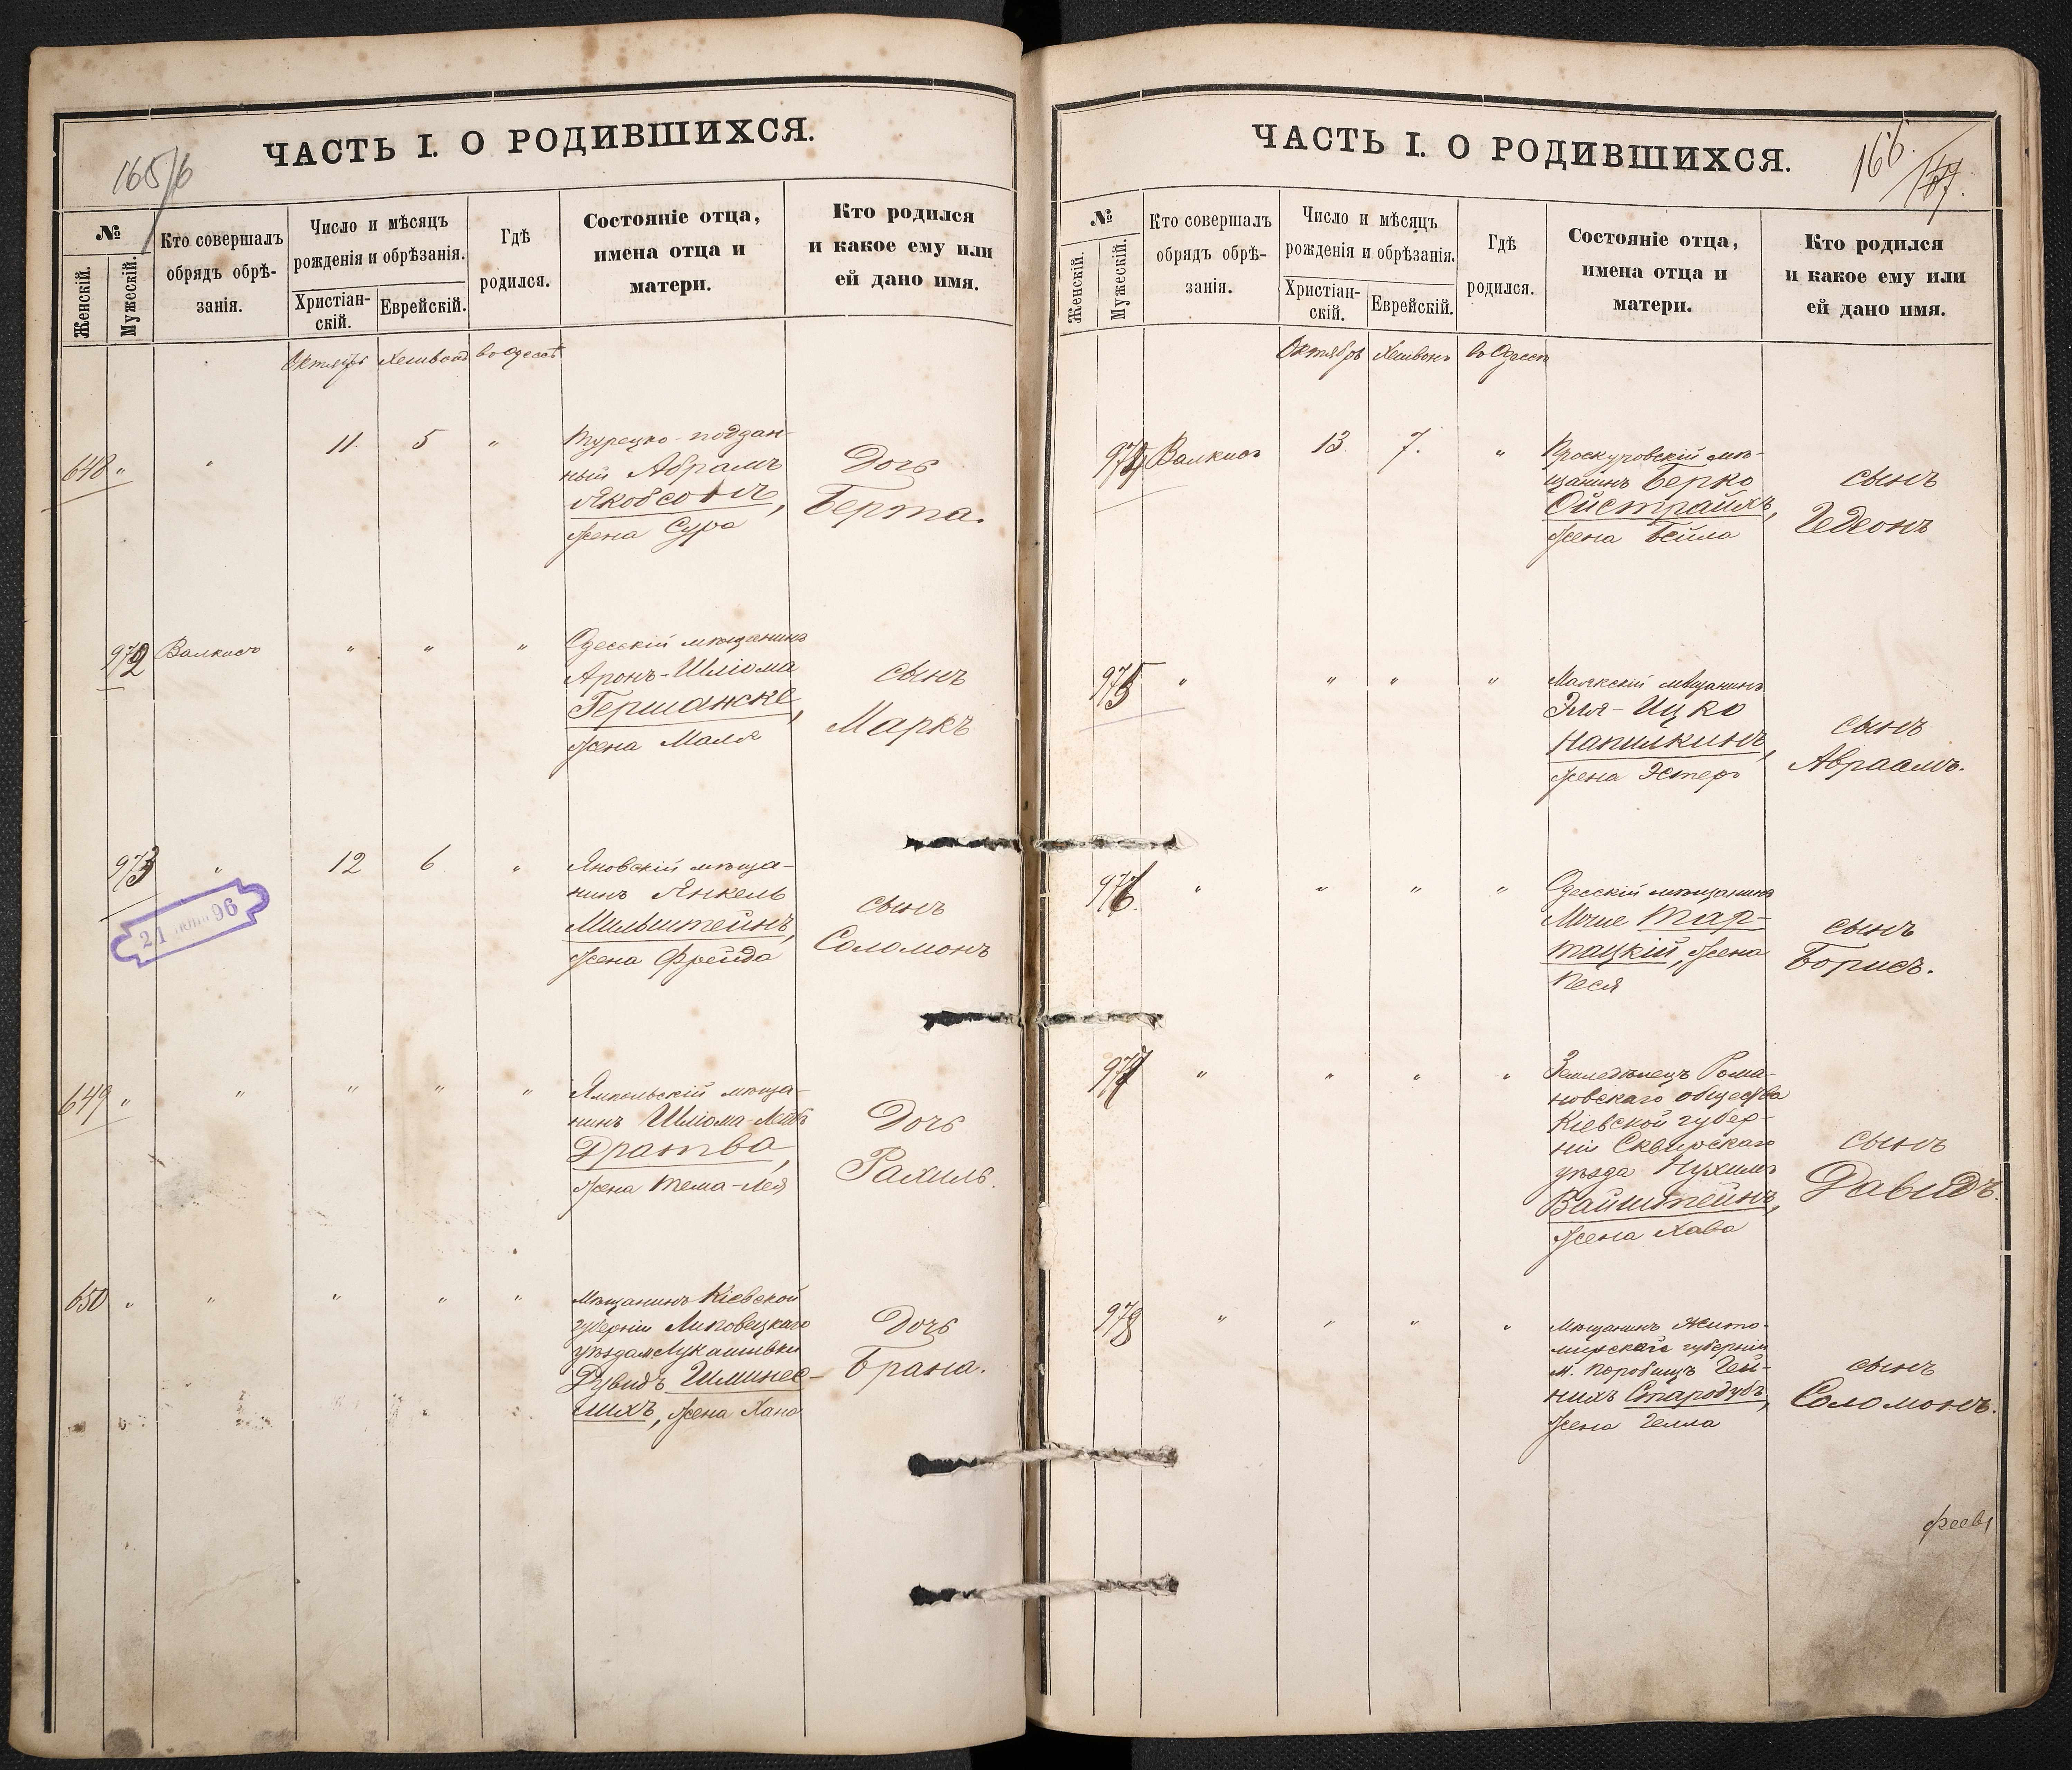 ЧАСТЬ I. О РОДИВШИХСЯ.
165/6
№
Женскій.
Мужескій.
Кто совершалъ
обрядъ обрѣ-
занія.
Число и мѣсяцъ
рожденія и обрѣзанія.
Христіан-
скій.
Еврейскій.
Гдѣ
родился.
Состояніе отца,
имена отца и
матери.
Кто родился
и какое ему или
ей дано имя.
Октябрь Хешвонъ въ Одессѣ
648 " " 11. 5 "
Турецко-поддан-
ный Абрамъ
Якобсонъ,
жена Сура
Дочь
Берта.
972 Валкисъ " " "
Одесскій мѣщанинъ
Аронъ-Шліома
Гершанске,
жена Маля
сынъ
Маркъ
973 " 12 6 "
21 96
Яновскій мѣща-
нинъ Янкель
Мильштейнъ,
жена Фрейда
сынъ
Соломонъ
649 " " " " "
Ямпольскій мѣща-
нинъ Шліома-Лейбъ
Дратва,
жена Тема-Лея
Дочь
Рахиль.
650 " " " " "
Мѣщанинъ Кіевской
губерніи Липовецкаго
уѣзда м. Лукашивки
Дувидъ
жена Хана
Дочь
Брана.
ЧАСТЬ I. О РОДИВШИХСЯ.
166.
167.
№
Женскій.
Мужескій.
Кто совершалъ
обрядъ обрѣ-
занія.
Число и мѣсяцъ
рожденія и обрѣзанія.
Христіан-
скій.
Еврейскій.
Гдѣ
родился.
Состояніе отца,
имена отца и
матери.
Кто родился
и какое ему или
ей дано имя.
Октябрь Хешвонъ въ Одессѣ
974 Валкисъ 13. 7. "
Проскуровскій мѣ-
щанинъ Берко
Ойстрайхъ,
жена Бейла
сынъ
Гедеонъ
975 " " " "
Маякскій мѣщанинъ
Эля-Ицко
Напилкинъ,
жена Эстеръ
сынъ
Авраамъ.
976. " " " "
Одесскій мѣщанинъ
Моше Тар-
тацкій, жена
Песя
сынъ
Борисъ.
977 " " " "
Земледѣлецъ Рома-
новскаго общества
Кіевской губер-
ніи Сквирскаго
уѣзда Нухимъ
Вайнштейнъ,
жена Хава
сынъ
Давидъ.
978 " " " "
Мѣщанинъ Жито-
мирской губерніи
м.
Стародубъ,
жена Гелла
сынъ
Соломонъ.